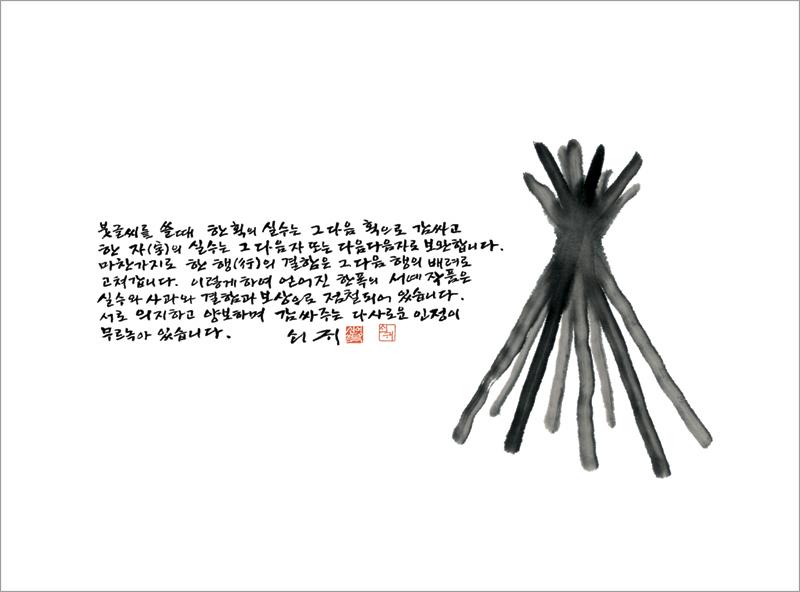 붓글씨를 쓸 때 한 획의 실수는 그 다음 획으로 감싸고
한 자(字)의 실수는 그 다음 자 또는 다음다음자로 보완합니다.
마찬가지로 한 행(行)의 결함은 그 다음 행의 배려로
고쳐갑니다. 이렇게하여 얻어진 한폭의 서예 작품은
실수와 사과와 결함과 보상으로 점철되어 있습니다.
서로 의지하고 양보하며 감싸주는 다사로운 인정이
무르녹아 있습니다. 쇠귀